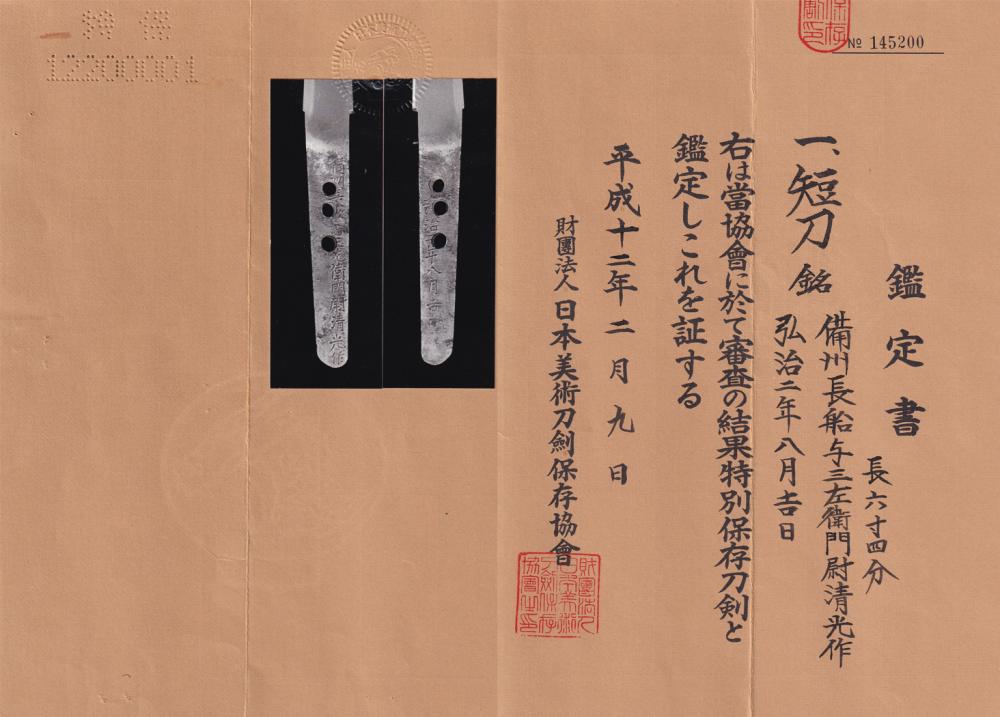 № 145200
鑑定書
長六寸四分
一、短刀 銘 備州長船与三左衛門尉清光作
弘治二年八月吉日
右は當協會に於て審査の結果特別保存刀剣と
鑑定しこれを証する
平成十二年二月九日
財團法人日本美術刀劍保存協會
12200001